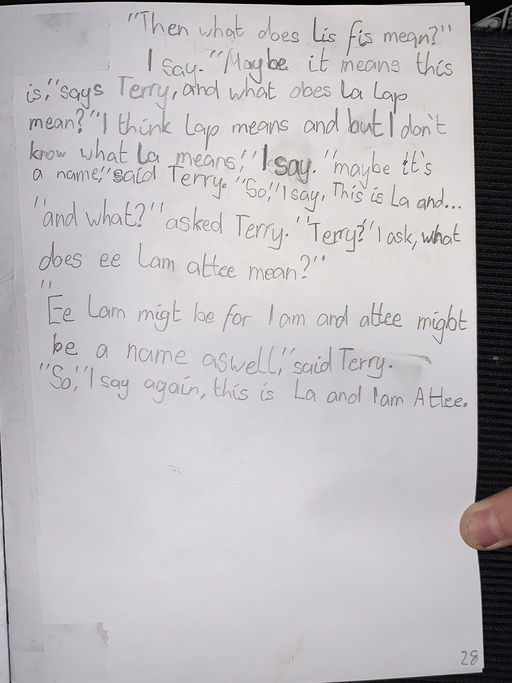 "Then what does Lis fis mean?"
I say. "Maybe it means this
is," says Terry, and what obes La Lap
mean?" "I think Lap means and but I don't
know what La means," I say. "maybe it's
a name," said Terry. "So," I say, This is La and...
"and what?" asked Terry. "Terry?" I ask, what
obes ee Lam attee mean?"
"Ee Lam migt be for I am and attee might
be a name aswell," said Terry.
"So," I say again, this is La and Iam Attee.
28